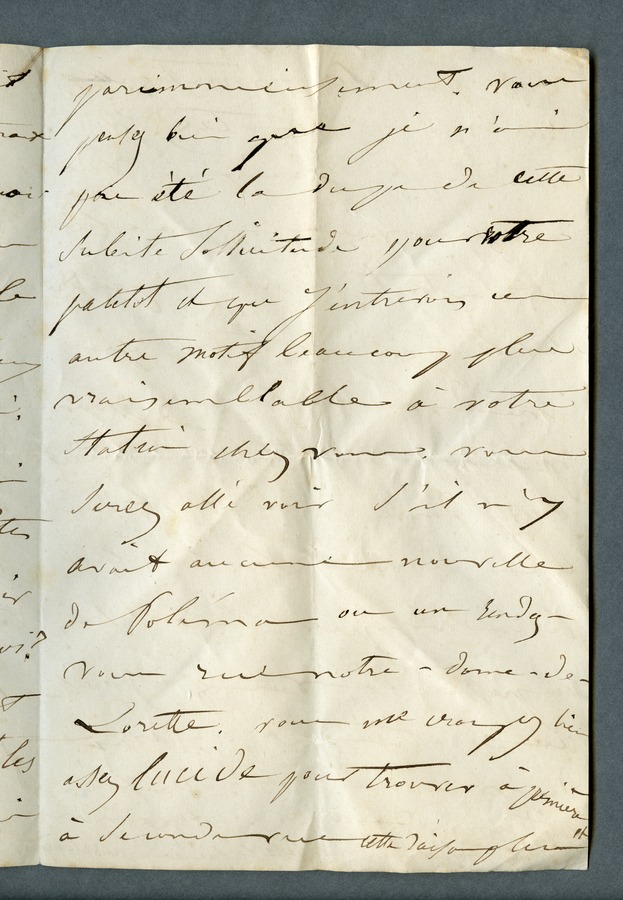 parcimonieusement. vous
pensez bien que je n'ai
pas été la dupe de cette
subite sollicitude pour votre
paletot et que j'entrevois un
autre motif beaucoup plus
vraisemblable à votre
station chez vous. vous
serez allé voir s'il n'y
avait aucune nouvelle
de Poléma ou un rendez-
vous rue notre-dame-de-
Lorette. vous me croyez bien
assez lucide pour trouver à première et
à seconde vue cette raison plus